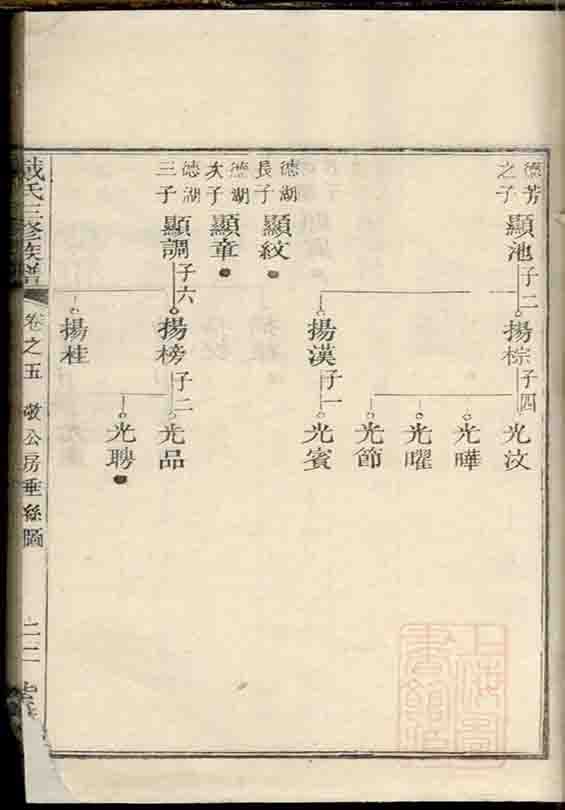 德芳之子
顯池
子二
揚棕
子四
光汶
光曄
光曜
光節
揚漢
子一
光賓
德湖長子
顯紋
德湖次子
顯童
德湖三子
顯調
子六
揚榜
子二
光品
光聘
揚桂
戴氏三修族譜
卷之五
敬公房垂絲圖
二二
上海圖書館藏